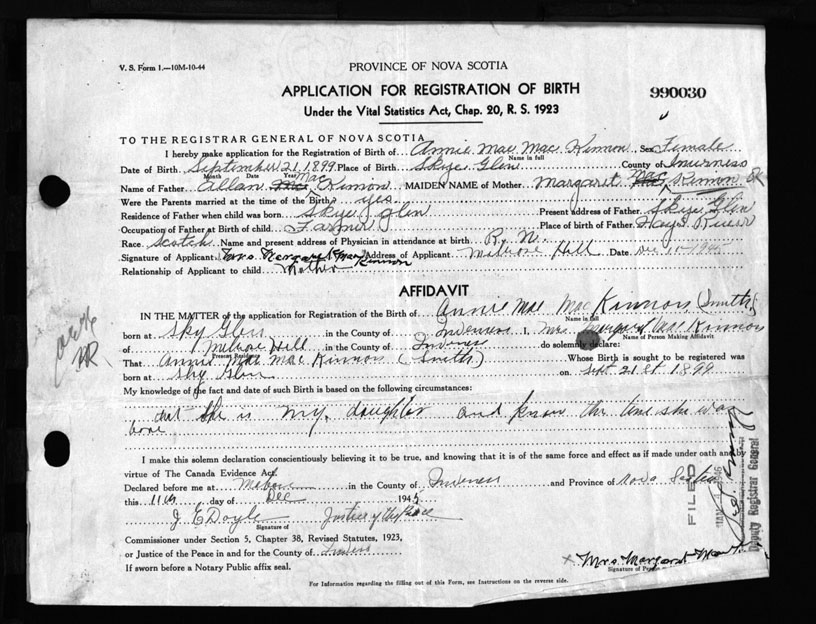 V. S. Form 1.—10M-10-44
PROVINCE OF NOVA SCOTIA
APPLICATION FOR REGISTRATION OF BIRTH
990030
Under the Vital Statistics Act, Chap. 20, R. S. 1923
TO THE REGISTRAR GENERAL OF NOVA SCOTIA
I hereby make application for the Registration of Birth of Annie Mae Mac Kinnon Sex Female
Name in full
Date of Birth September 21 1899 Place of Birth Skye Glen County of Inverness
Month Date Year
Name of Father Allan Mac Kinnon MAIDEN NAME of Mother Margaret Mac Kinnon
Were the Parents married at time of the Birth? yes
Residence of Father when child was born Skye Glen Present address of Father Skye Glen
Occupation of Father at Birth of child Farmer Place of birth of Father
Race Scotch Name and present address of Physician in attendance at birth
Signature of Applicant Mrs. Margaret Mac Kinnon Address of Applicant Hill Date Dec 10
Relationship of Applicant to child Mother
AFFIDAVIT
IN THE MATTER of the application for Registration of Birth of Annie Mae Mac Kinnon (Smith)
Name in full
born at Sky Glen in the County of Inverness I, Mrs Margaret Mac Kinnon
Name of Person Making Affidavit
of Hill in the County of Inverness do solemnly declare:
Present Residence
That Annie Mae Mac Kinnon (Smith) Whose Birth is sought to be registered was
born at Sky Glen on Sept 21 st 1899
My knowledge of the fact and date of such Birth is based on the following circumstances:
that she is my daughter and know the time she was
born
I make this solemn declaration conscientiously believing it to be true, and knowing that it is of the same force and effect as if made under oath and by
virtue of The Canada Evidence Act.
Declared before me at Mabou in the County of Inverness and Province of Nova Scotia
this 11th day of Dec 1945
J E Doyle Justice of the Peace
Signature of
Commissioner under Section 5, Chapter 38, Revised Statutes, 1923,
or Justice of the Peace in and for the County of Inverness
If sworn before a Notary Public affix seal.
x Mrs Margaret
Signature of
For Information regarding the filling out of this Form, see Instructions on the reverse side.
FILED
Deputy Registrar General